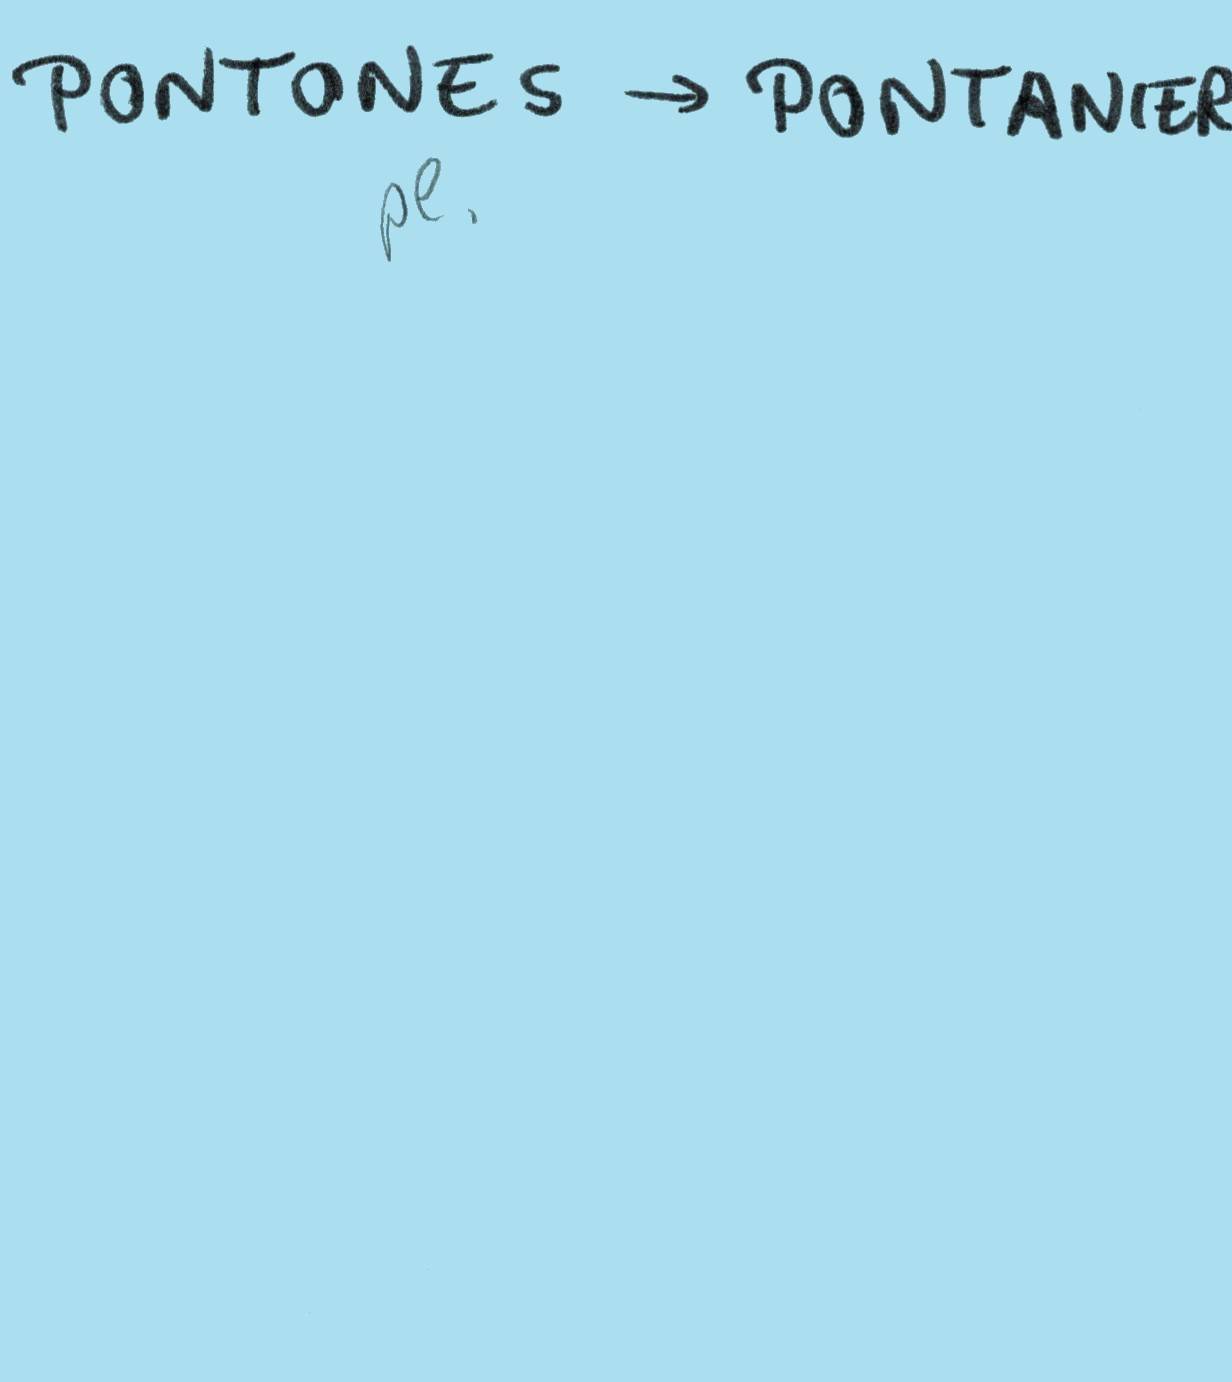 PONTONES → PONTANIER
pl.